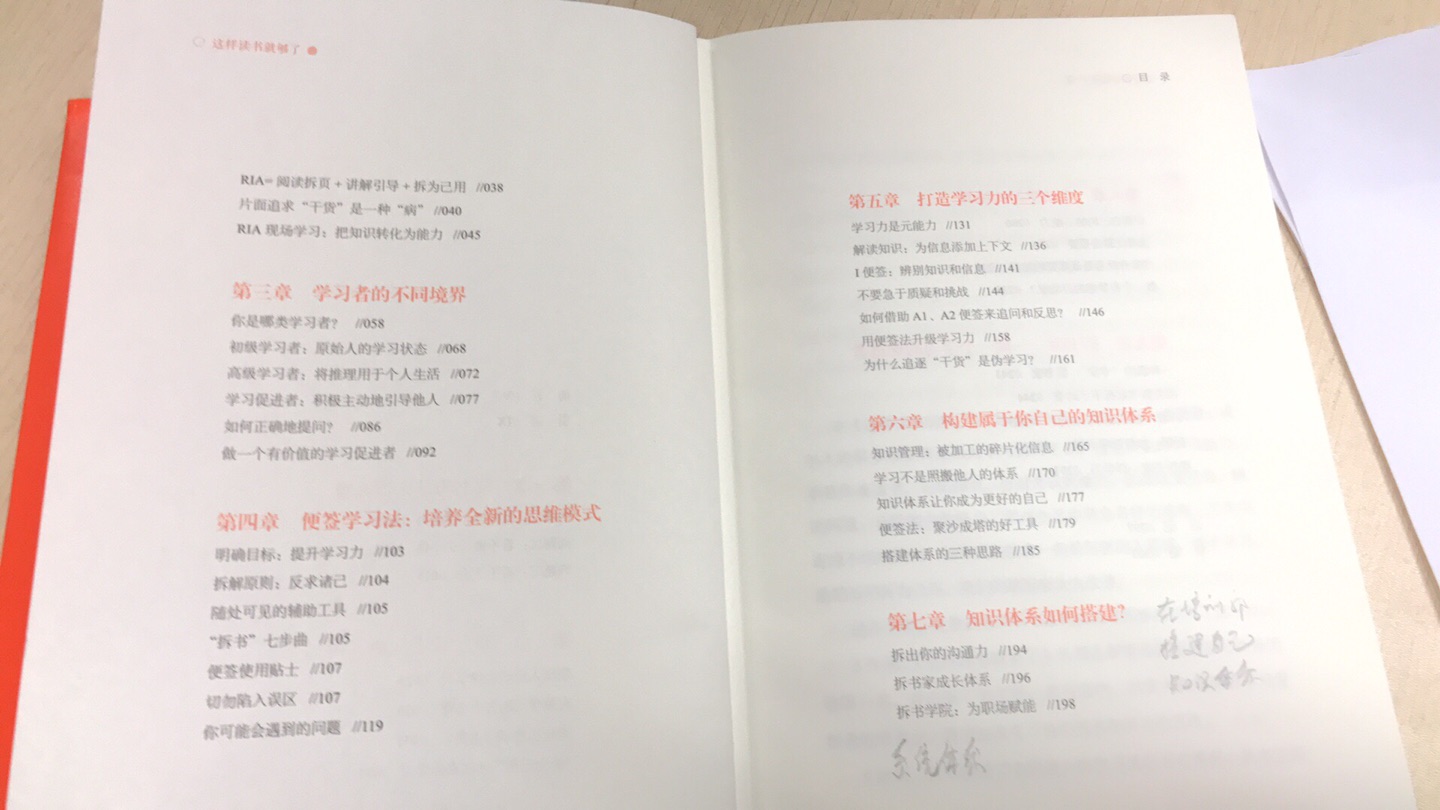 ○ 这样读书就够了 ●
RIA= 阅读拆页 + 讲解引导 + 拆为己用 //038
片面追求“干货”是一种“病” //040
RIA 现场学习：把知识转化为能力 //045
第三章 学习者的不同境界
你是哪类学习者？ //058
初级学习者：原始人的学习状态 //068
高级学习者：将推理用于个人生活 //072
学习促进者：积极主动地引导他人 //077
如何正确地提问？ //086
做一个有价值的学习促进者 //092
第四章 便签学习法：培养全新的思维模式
明确目标：提升学习力 //103
拆解原则：反求诸己 //104
随处可见的辅助工具 //105
“拆书”七步曲 //105
便签使用贴士 //107
切勿陷入误区 //107
你可能会遇到的问题 //119
目 录
第五章 打造学习力的三个维度
学习力是元能力 //131
解读知识：为信息添加上下文 //136
I 便签：辨别知识和信息 //141
不要急于质疑和挑战 //144
如何借助 A1、A2 便签来追问和反思？ //146
用便签法升级学习力 //158
为什么追逐“干货”是伪学习？ //161
第六章 构建属于你自己的知识体系
知识管理：被加工的碎片化信息 //165
学习不是照搬他人的体系 //170
知识体系让你成为更好的自己 //177
便签法：聚沙成塔的好工具 //179
搭建体系的三种思路 //185
第七章 知识体系如何搭建？
拆出你的沟通力 //194
拆书家成长体系 //196
拆书学院：为职场赋能 //198
搭建自己